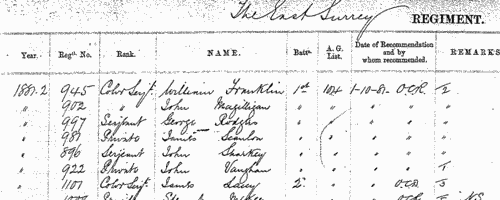 The East Surrey REGIMENT.
Year. Regtl. No. Rank. NAME. Batn. A. G. List. Date of Recommendation and by whom recommended. REMARKS
1881-2 945 Color Serjt. William Franklin 1st 104 1-10-81 O.C.R. 2
" 902 " John Magilligan " " " " "
" 997 Serjeant George Rodgers " " " " "
" 987 Private James Scanlon " " " " "
" 896 Serjeant John Sharkey " " " " "
" 922 Private John Vaughan " " " " 1
" 1101 Color Serjt. James Lacey 2 " " O.C.R. 3